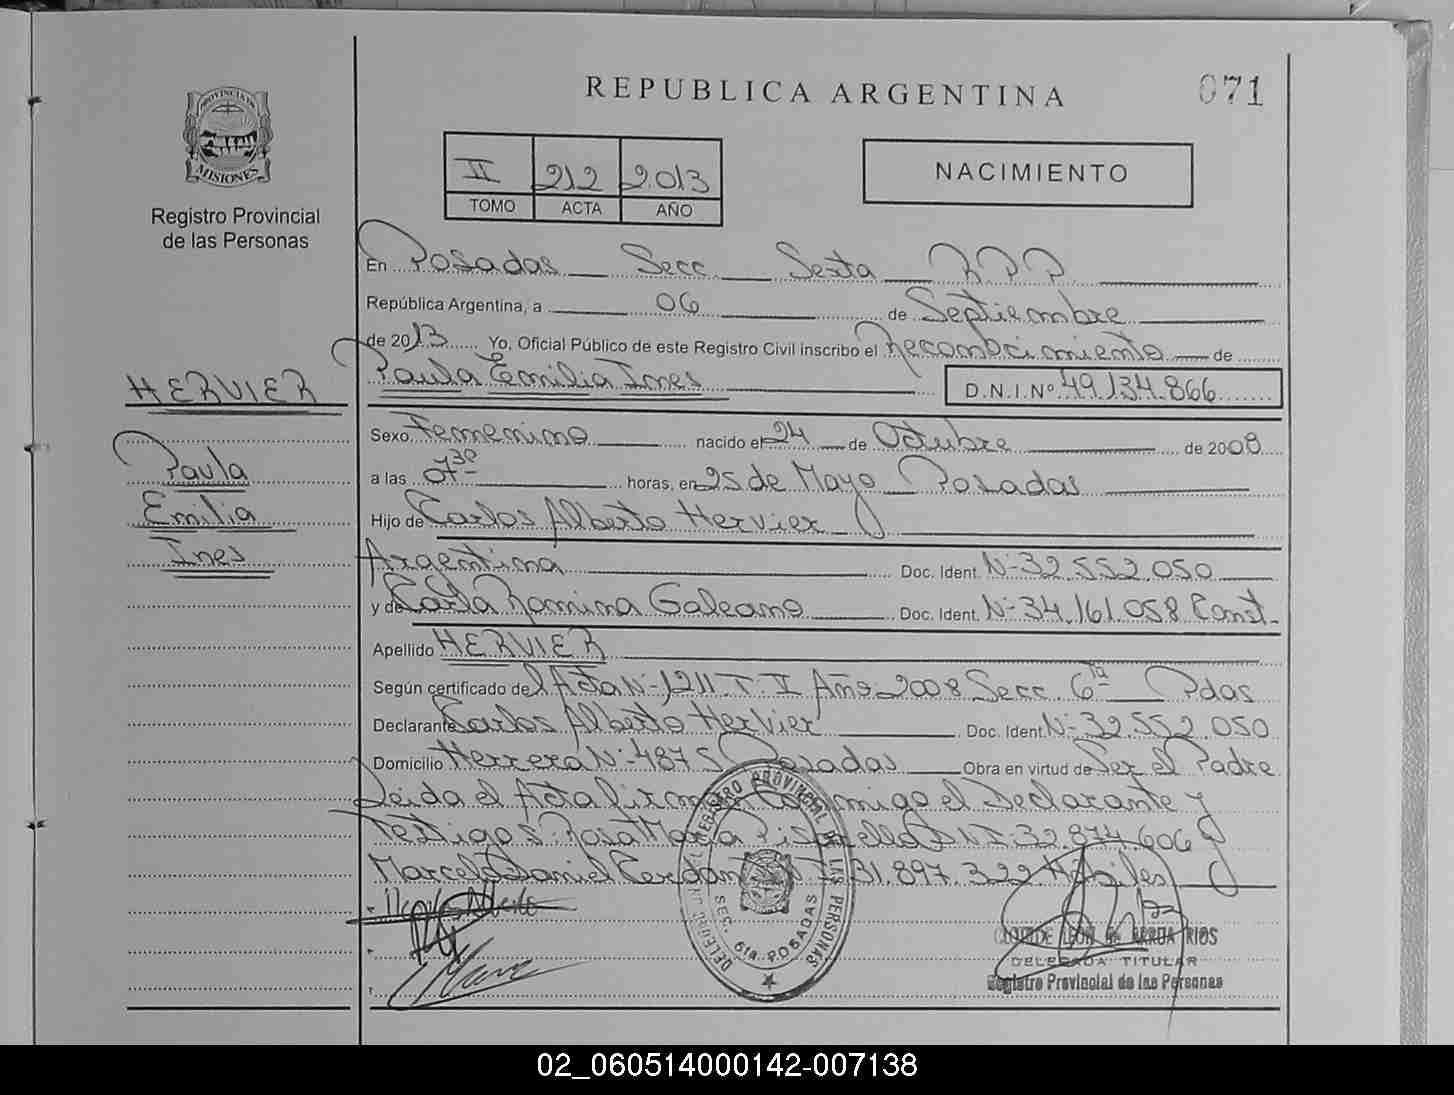 REPUBLICA ARGENTINA
071
PROVINCIA DE
MISIONES
Registro Provincial
de las Personas
II 212 2.013
TOMO ACTA AÑO
NACIMIENTO
En Posadas Secc Sexta R P P
República Argentina, a 06 de Septiembre
de 2013 Yo, Oficial Público de este Registro Civil inscribo el Reconocimiento de
Paula Emilia Ines D.N.I.Nº 49.134.866
HERVIER
Paula
Emilia
Ines
Sexo Femenino nacido el 24 de Octubre de 2008
a las 07 30 horas, en 25 de Mayo Posadas
Hijo de Carlos Alberto Hervier
Argentina Doc. Ident. Nº 32.552.050
y de Carla Romina Galeano Doc. Ident. Nº 34.161.058 Const.
Apellido HERVIER
Según certificado del Acta Nº 1211 T: II Año 2008 Secc. 6ta Pdas
Declarante Carlos Alberto Hervier Doc. Ident. Nº 32.552.050
Domicilio Herrera Nº 4875 Posadas Obra en virtud de Ser el Padre
Leida el Acta firman Conmigo el Declarante y
Testigos: Rosa Maria DNI: 32.874.606 y
Marcelo Daniel 31.897.322 Hábiles
REGISTRO PROVINCIAL DE LAS PERSONAS
SEC. 6ta POSADAS
DELEGADA TITULAR
Registro Provincial de las Personas
02_060514000142-007138